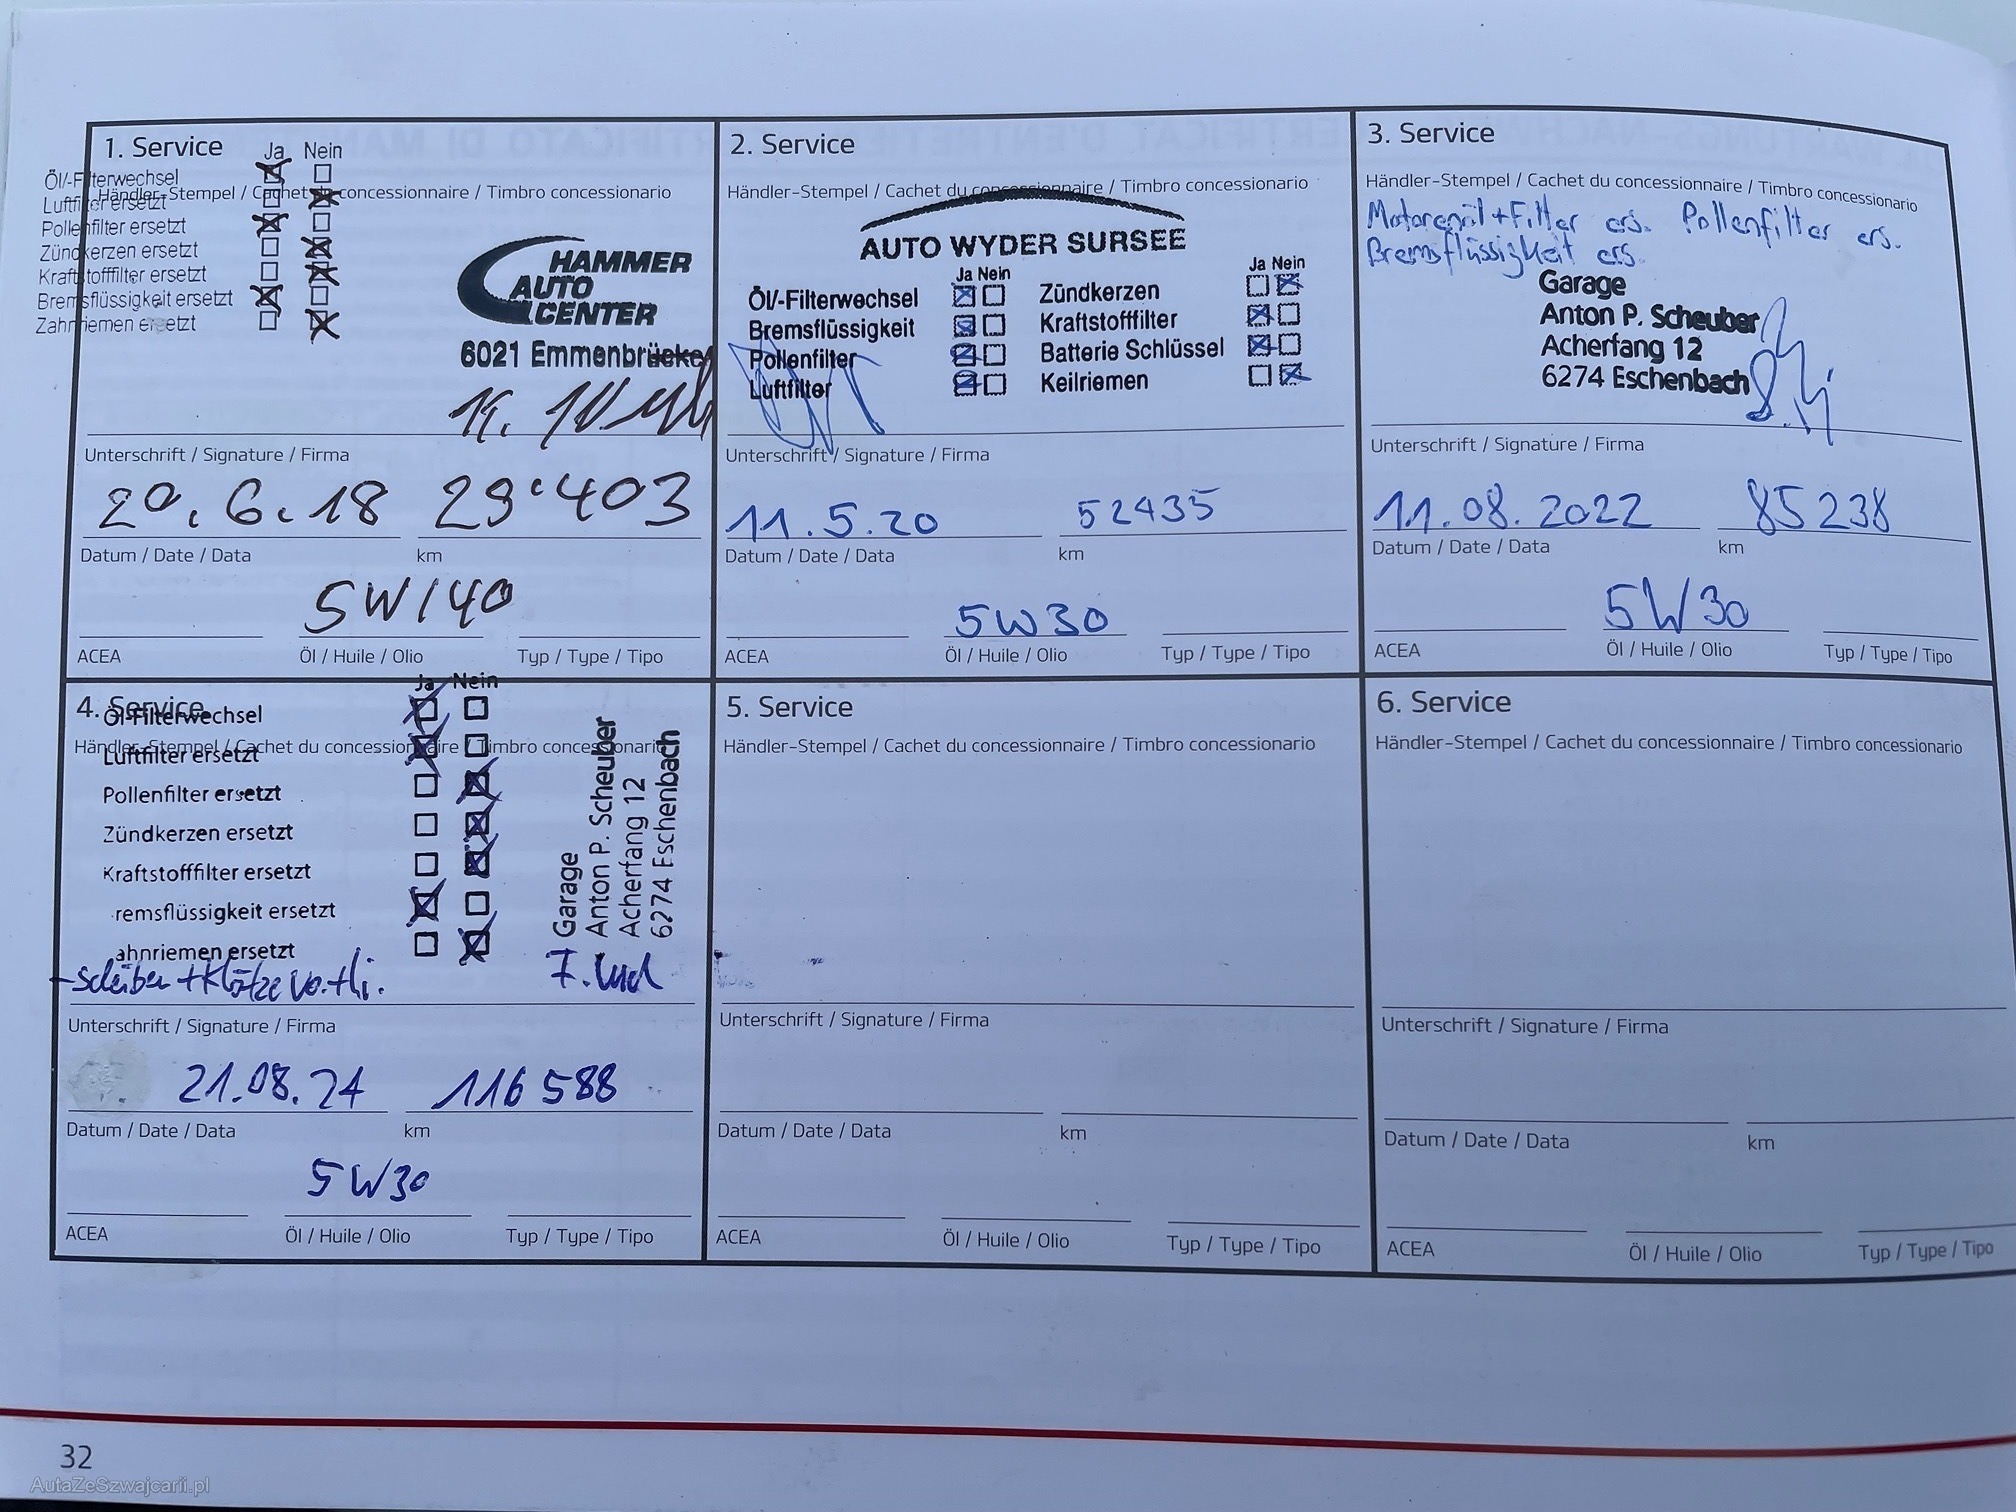 1. Service
Ja Nein
Öl/-Filterwechsel
Händler-Stempel / Cachet du concessionnaire / Timbro concessionario
Luftfilter ersetzt
Pollenfilter ersetzt
Zündkerzen ersetzt
Kraftstofffilter ersetzt
Bremsflüssigkeit ersetzt
Zahnriemen ersetzt
HAMMER
AUTO
CENTER
6021 Emmenbrücke
Unterschrift / Signature / Firma
20.6.18 29'403
Datum / Date / Data km
5W/40
ACEA Öl / Huile / Olio Typ / Type / Tipo
2. Service
Händler-Stempel / Cachet du concessionnaire / Timbro concessionario
AUTO WYDER SURSEE
Ja Nein Ja Nein
Öl/-Filterwechsel Zündkerzen
Bremsflüssigkeit Kraftstofffilter
Pollenfilter Batterie Schlüssel
Luftfilter Keilriemen
Unterschrift / Signature / Firma
11.5.20 52435
Datum / Date / Data km
5W30
ACEA Öl / Huile / Olio Typ / Type / Tipo
3. Service
Händler-Stempel / Cachet du concessionnaire / Timbro concessionario
Motorenöl + Filter ers. Pollenfilter ers.
Bremsflüssigkeit ers.
Garage
Anton P. Scheuber
Acherfang 12
6274 Eschenbach
Unterschrift / Signature / Firma
11.08.2022 85238
Datum / Date / Data km
5W30
ACEA Öl / Huile / Olio Typ / Type / Tipo
4. Service
Ja Nein
Öl-Filterwechsel
Händler-Stempel / Cachet du concessionnaire / Timbro concessionario
Luftfilter ersetzt
Pollenfilter ersetzt
Zündkerzen ersetzt
Kraftstofffilter ersetzt
remsflüssigkeit ersetzt
ahnriemen ersetzt
Garage
Anton P. Scheuber
Acherfang 12
6274 Eschenbach
Unterschrift / Signature / Firma
21.08.24 116588
Datum / Date / Data km
5W30
ACEA Öl / Huile / Olio Typ / Type / Tipo
5. Service
Händler-Stempel / Cachet du concessionnaire / Timbro concessionario
Unterschrift / Signature / Firma
Datum / Date / Data km
ACEA Öl / Huile / Olio Typ / Type / Tipo
6. Service
Händler-Stempel / Cachet du concessionnaire / Timbro concessionario
Unterschrift / Signature / Firma
Datum / Date / Data km
ACEA Öl / Huile / Olio Typ / Type / Tipo
32
AutaZeSzwajcarii.pl